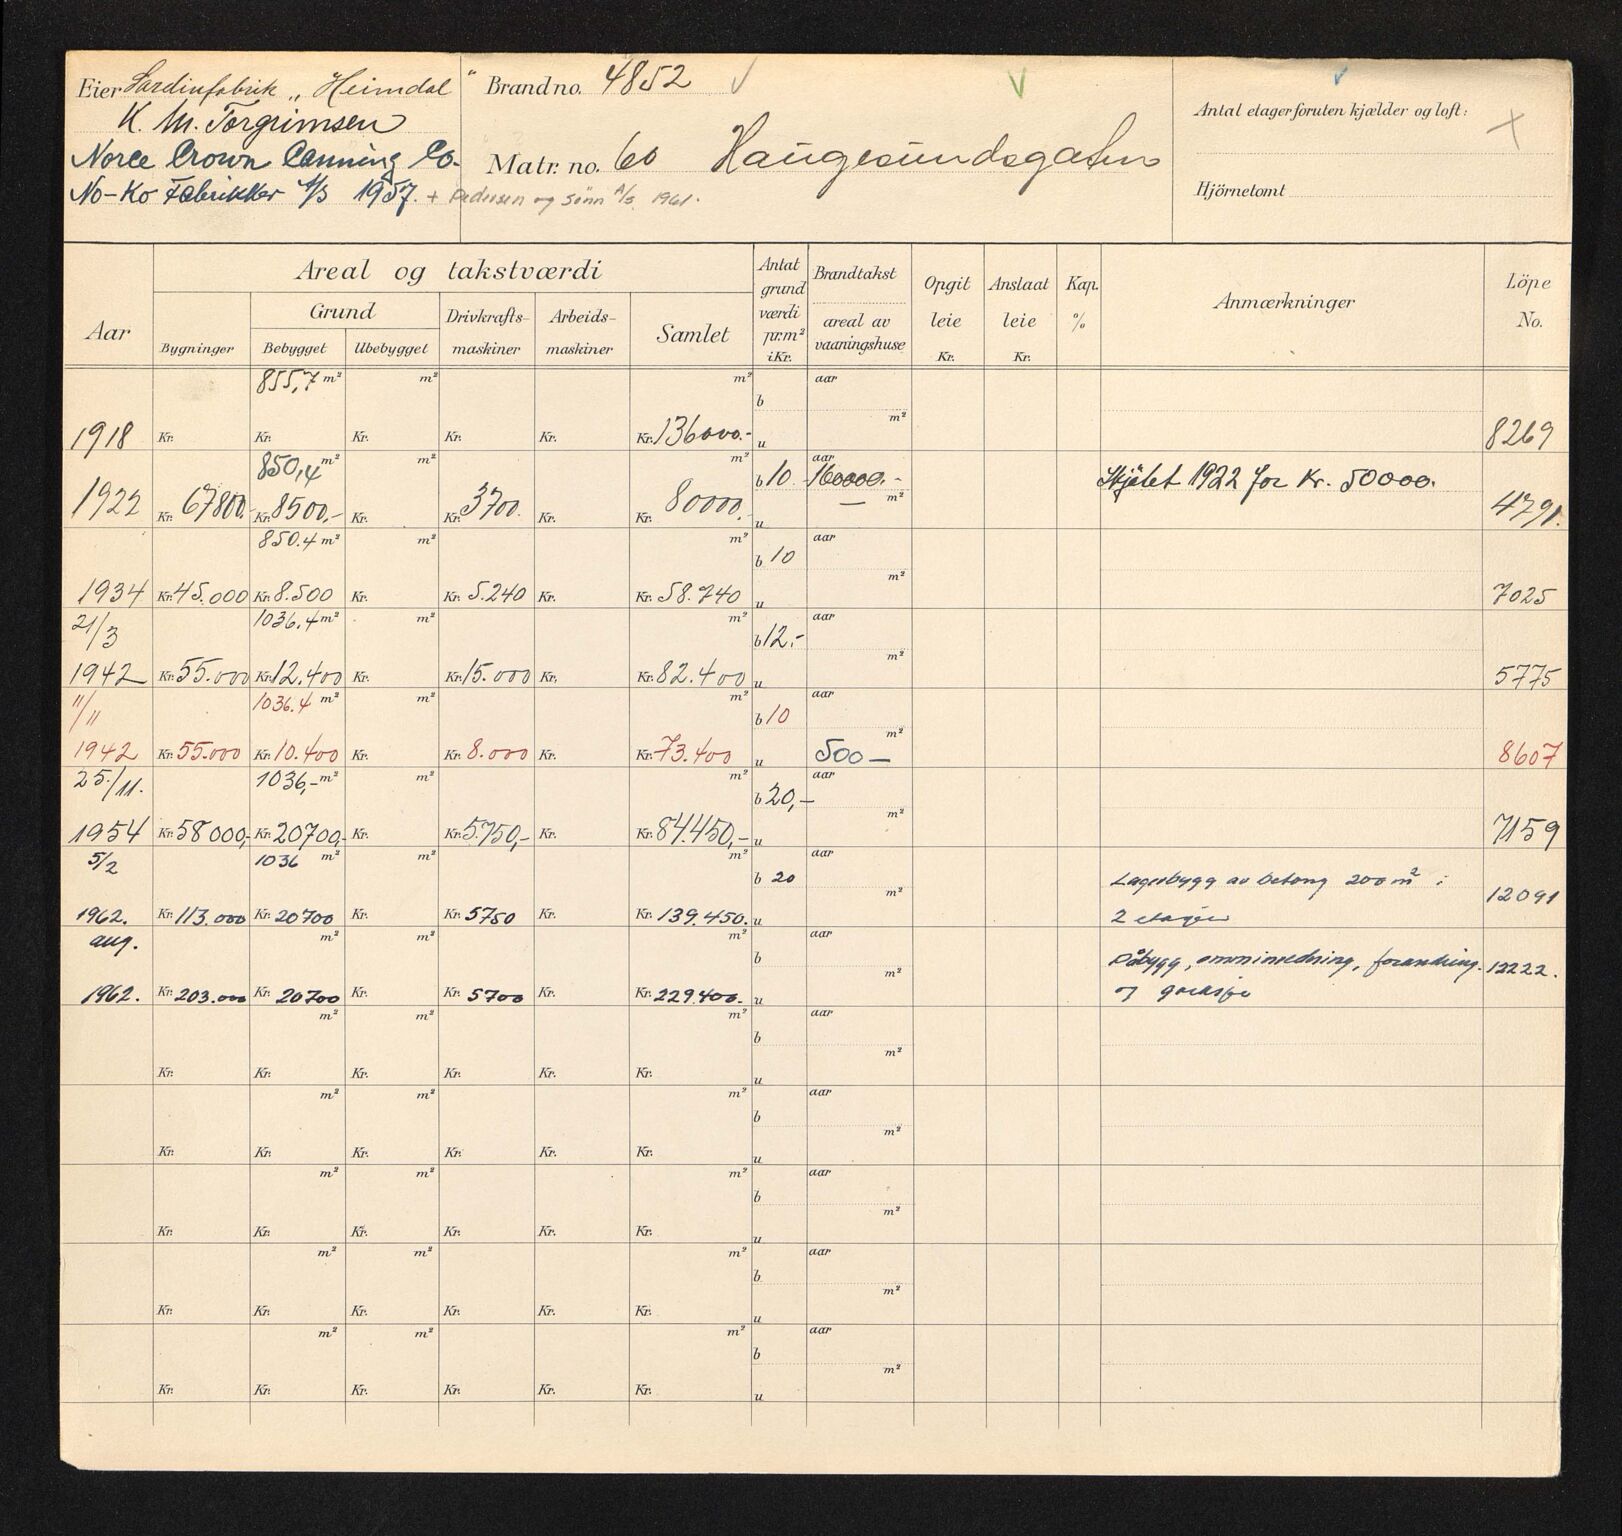 Eier Sardinfabrik „Heimdal"
K. M. Torgrimsen
Norce Crown Canning Co.
No-Ko Fabrikker A/S 1957. + Pedersen og sønn A/S 1961.
Brand no. 4852
Matr. no. 60 Haugesundsgaten
Antal etager foruten kjælder og loft:
Hjörnetomt
Aar
Areal og takstværdi
Bygninger
Grund
Bebygget
Ubebygget
Drivkrafts-maskiner
Arbeids-maskiner
Samlet
Antat grund værdi pr. m² i Kr.
Brandtakst
areal av vaaningshuse
Opgit leie Kr.
Anslaat leie Kr.
Kap. %
Anmærkninger
Löpe No.
855,7 m² m² m² b aar m²
1918 Kr. Kr. Kr. Kr. Kr. Kr. 136000.- u 8269
850,4 m² m² m² b 10 aar 160000.- m² Skjötet 1922 for Kr. 50000.
1922 Kr. 67800.- Kr. 8500,- Kr. Kr. 3700. Kr. Kr. 80000. u — 4791.
850.4 m² m² m² b 10 aar m²
1934 Kr. 45.000 Kr. 8.500 Kr. Kr. 5.240 Kr. Kr. 58.740 u 7025
21/3 1036.4 m² m² m² b 12.- aar m²
1942 Kr. 55.000 Kr. 12.400 Kr. Kr. 15.000 Kr. Kr. 82.400 u 5775
11/11 1036.4 m² m² m² b 10 aar m²
1942 Kr. 55.000 Kr. 10.400 Kr. Kr. 8.000 Kr. Kr. 73.400 u 500 — 8607
25./11. 1036,- m² m² m² b 20,- aar m²
1954 Kr. 58000,- Kr. 20700,- Kr. Kr. 5.750,- Kr. Kr. 84.450,- u 7159
5/2 1036 m² m² m² b 20 aar m² Lagerbygg av betong 200 m² i
1962. Kr. 113.000 Kr. 20700 Kr. Kr. 5750 Kr. Kr. 139.450. u 2 etasjer 12091
aug. m² m² m² b aar m² Påbygg, omninredning, forandring.
1962. Kr. 203.000 Kr. 20700 Kr. Kr. 5700 Kr. Kr. 229.400.- u og 12222.
m² m² m² b aar m²
Kr. Kr. Kr. Kr. Kr. Kr. u
m² m² m² b aar m²
Kr. Kr. Kr. Kr. Kr. Kr. u
m² m² m² b aar m²
Kr. Kr. Kr. Kr. Kr. Kr. u
m² m² m² b aar m²
Kr. Kr. Kr. Kr. Kr. Kr. u
m² m² m² b aar m²
Kr. Kr. Kr. Kr. Kr. Kr. u